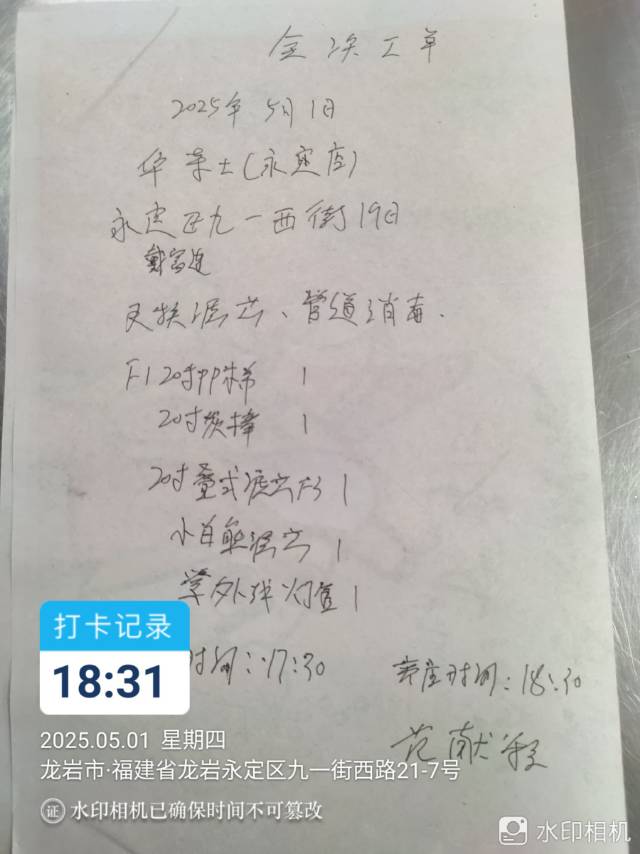 2025年5月1日
华莱士(永定店)
永定区九一西街19日
更换滤芯、管道消毒.
F1 20寸PP棉 1
20寸炭棒 1
20寸叠式滤芯F3 1
小白熊滤芯 1
紫外线灯管 1
时间:17:30 离店时间:18:30
范献
打卡记录
18:31
2025.05.01 星期四
龙岩市·福建省龙岩永定区九一街西路21-7号
证 水印相机已确保时间不可篡改
水印相机